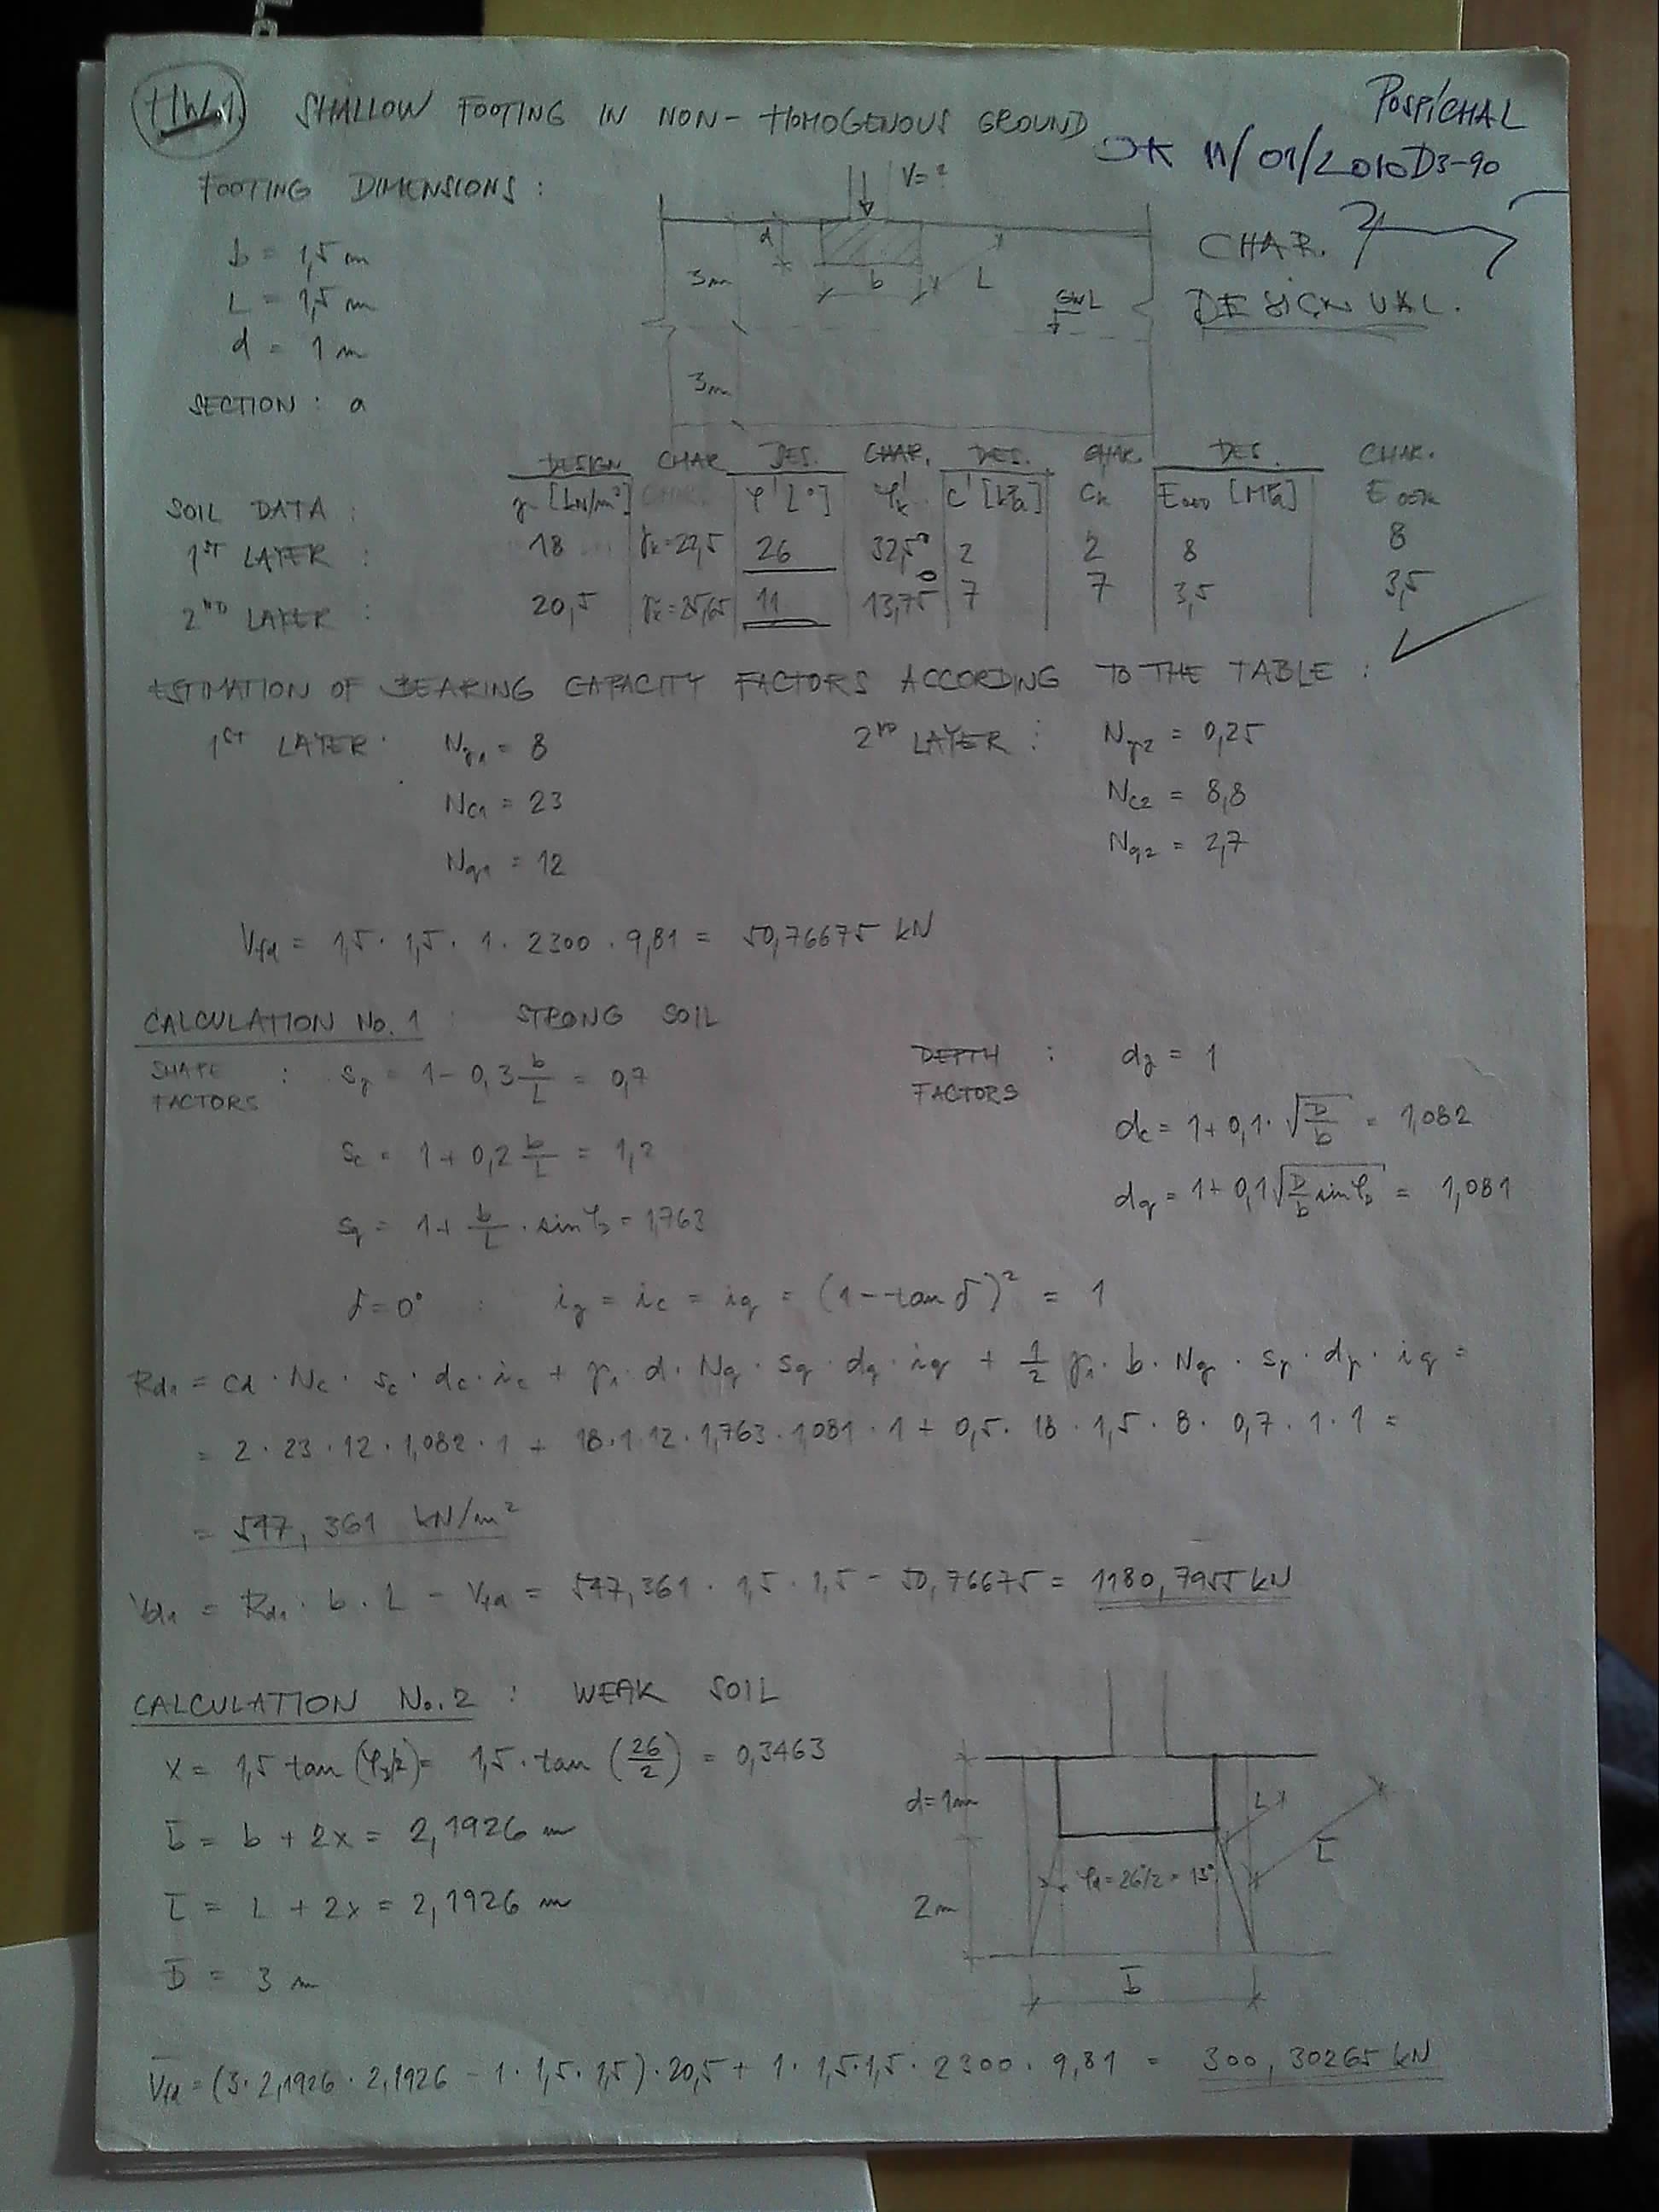 HW.1 SHALLOW FOOTING IN NON-HOMOGENOUS GROUND
POSPÍCHAL
OK 11/01/2010 D3-90
FOOTING DIMENSIONS :
b = 1,5 m
L = 1,5 m
d = 1 m
SECTION : a
V=?
d
3m
b
L
GWL
3m
CHAR. ?
DESIGN VAL.
DESIGN CHAR. DES. CHAR. DES. CHAR. DES. CHAR.
SOIL DATA : γ [kN/m³] CHAR. φ' [°] φ'k c' [kPa] Ck Eoed [MPa] Eoedk
1ST LAYER : 18 γk=22,5 26 32,5° 2 2 8 8
2ND LAYER : 20,5 γk=25,65 11 13,75° 7 7 3,5 3,5
ESTIMATION OF BEARING CAPACITY FACTORS ACCORDING TO THE TABLE :
1ST LAYER : Nγ1 = 8
Nc1 = 23
Nq1 = 12
2ND LAYER : Nγ2 = 0,25
Nc2 = 8,8
Nq2 = 2,7
Vfd = 1,5 · 1,5 · 1 · 2300 · 9,81 = 50,76675 kN
CALCULATION No. 1 : STRONG SOIL
SHAPE FACTORS : sγ = 1 - 0,3 b/L = 0,7
sc = 1 + 0,2 b/L = 1,2
sq = 1 + b/L · sin φD = 1,763
DEPTH FACTORS : dγ = 1
dc = 1 + 0,1 · √(D/b) = 1,082
dq = 1 + 0,1 √(D/b sin φD) = 1,081
δ = 0° : iγ = ic = iq = (1 - tan δ)² = 1
Rd1 = cd · Nc · sc · dc · ic + γ1 · d · Nq · sq · dq · iq + 1/2 γ1 · b · Nγ · sγ · dγ · iq =
= 2 · 23 · 12 · 1,082 · 1 + 18 · 1 · 12 · 1,763 · 1,081 · 1 + 0,5 · 18 · 1,5 · 8 · 0,7 · 1 · 1 =
= 547,361 kN/m²
Vd1 = Rd1 · b · L - Vfd = 547,361 · 1,5 · 1,5 - 50,76675 = 1180,7955 kN
CALCULATION No. 2 : WEAK SOIL
x = 1,5 tan (φd/2) = 1,5 · tan (26/2) = 0,3463
b̄ = b + 2x = 2,1926 m
L̄ = L + 2x = 2,1926 m
D̄ = 3 m
d=1m
L
L̄
φd = 26°/2 = 13°
2m
b̄
V̄fd = (3 · 2,1926 · 2,1926 - 1 · 1,5 · 1,5) · 20,5 + 1 · 1,5 · 1,5 · 2300 · 9,81 = 300,30265 kN